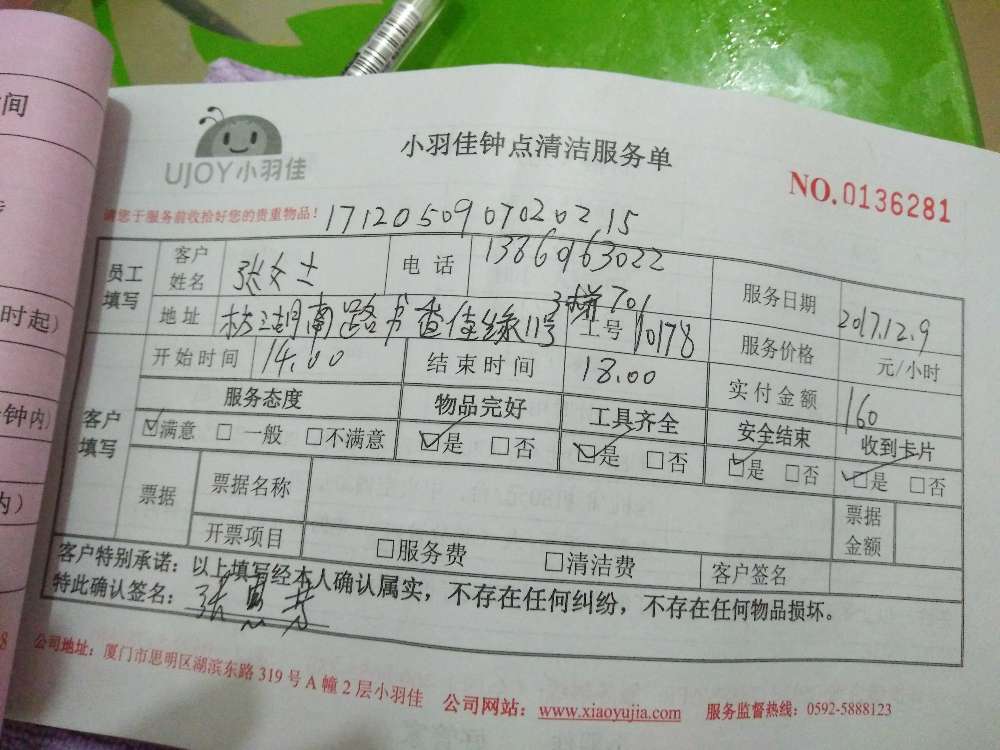 间
时起)
钟内)
内)
UJOY小羽佳
小羽佳钟点清洁服务单
NO.0136281
请您于服务前收拾好您的贵重物品！ 1712050907020215
员工填写 客户姓名 张女士 电话 13860163022 服务日期 2017.12.9
地址 枋湖南路书香佳缘11号 3梯701 工号 10178 服务价格 元/小时
客户填写 开始时间 14.00 结束时间 18.00 实付金额 160
服务态度 物品完好 工具齐全 安全结束 收到卡片
☑满意 □一般 □不满意 ☑是 □否 ☑是 □否 ☑是 □否 ☑是 □否
票据 票据名称 票据金额
开票项目 □服务费 □清洁费 客户签名
客户特别承诺：以上填写经本人确认属实，不存在任何纠纷，不存在任何物品损坏。
特此确认签名：张
公司地址：厦门市思明区湖滨东路319号A幢2层小羽佳 公司网站：www.xiaoyujia.com 服务监督热线：0592-5888123